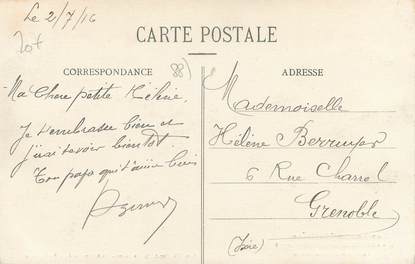 Le 2/7/16
CARTE POSTALE
CORRESPONDANCE
ADRESSE
Ma Chere petite Hélène,
Je t'embrasse bien et
j'irai te voir bientot.
Ton papa qui t'aime bien
Mademoiselle
Hélène
6 Rue Charrel
Grenoble
(Isère)